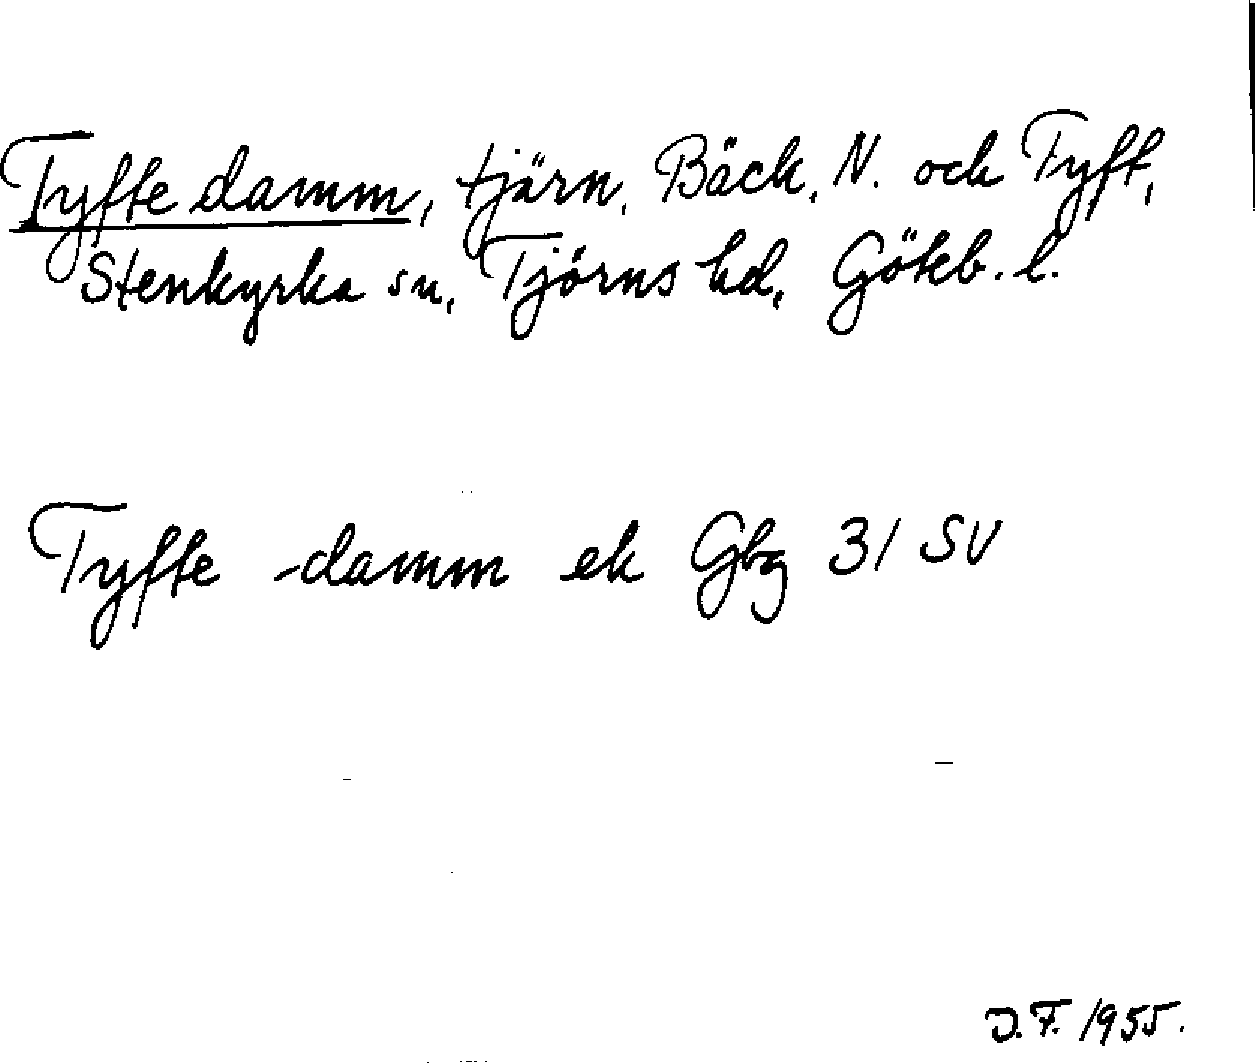 Tyfte damm, tjärn, Bäck, N. och Tyft,
Stenkyrka sn, Tjörns hd, Götkb. l.
Tyfte -damm ek Gbg 31 SV
D.F. 1955.